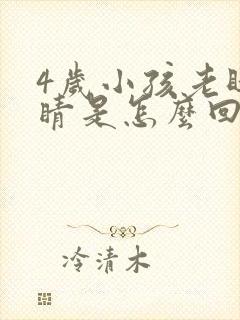 4歲小孩老
睛是怎麼回
冷清木